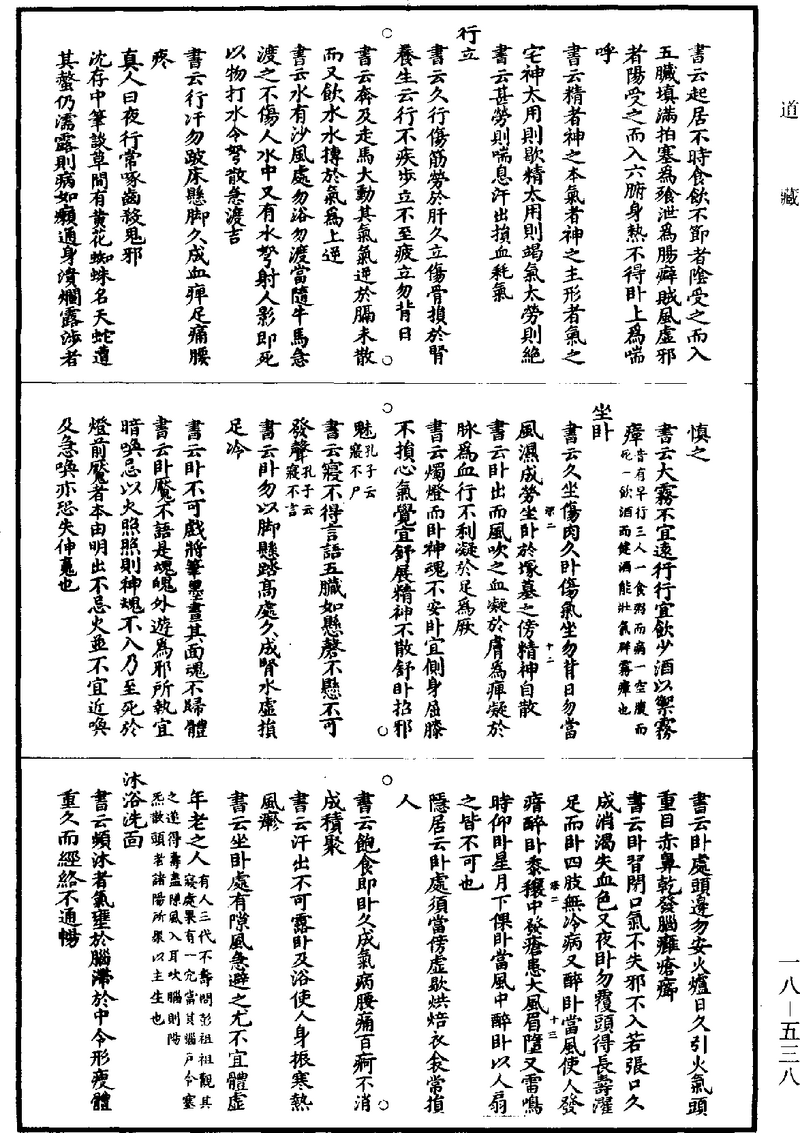 道藏
書云起居不時食飲不節者陰受之而入
五臟填滿拍塞為飱泄為腸癖賊風虛邪
者陽受之而入六腑身熱不得卧上為喘
呼
書云精者神之本氣者神之主形者氣之
宅神太用則歇精太用則竭氣太勞則絕
書云甚勞則喘息汗出損血耗氣
行立
書云久行傷筋勞於肝久立傷骨損於腎
養生云行不疾步立不至疲立勿背日
書云奔及走馬大動其氣氣逆於膈未散
而又飲水水摶於氣為上逆
書云水有沙風處勿浴勿渡當隨牛馬急
渡之不傷人水中又有水弩射人影即死
以物打水令弩散急渡吉
書云行汗勿跂床懸脚久成血痺足痛腰
疼
真人曰夜行常啄齒殺鬼邪
沈存中筆談草間有黃花蜘蛛名天蛇遭
其螫仍濡露則病如癩通身潰爛露涉者
慎之
書云大霧不宜遠行行宜飲少酒以禦霧
瘴昔有早行三人一食粥而病一空腹而
死一飲酒而健酒能壯氣辟霧瘴也
坐卧
書云久坐傷肉久卧傷氣坐勿背日勿當
風濕成勞坐卧於塚墓之傍精神自散
書云卧出而風吹之血凝於膚為痺凝於
脉為血行不利凝於足為厥
書云燭燈而卧神魂不安卧宜側身屈膝
不損心氣覺宜舒展精神不散舒卧招邪
魅孔子云
寢不尸
書云寢不得言語五臟如懸磬不懸不可
發聲孔子云
寢不言
書云卧勿以脚懸踏高處久成腎水虛損
足冷
書云卧不可戲將筆墨畫其面魂不歸體
書云卧魘不語是魂魄外遊為邪所執宜
暗喚忌以火照照則神魂不入乃至死於
燈前魘者本由明出不忌火並不宜近喚
及急喚亦恐失伸䰟也
書云卧處頭邊勿安火爐日久引火氣頭
重目赤鼻乾發腦癰瘡癤
書云卧習閉口氣不失邪不入若張口久
成消渴失血色又夜卧勿覆頭得長壽濯
足而卧四肢無冷病又醉卧當風使人發
瘖醉卧黍穰中發瘡患大風眉墮又雷鳴
時仰卧星月下倮卧當風中醉卧以人扇
之皆不可也
隱居云卧處須當傍虛歇烘焙衣衾常損
人
書云飽食即卧久成氣病腰痛百痾不消
成積聚
書云汗出不可露卧及浴使人身振寒熱
風癬
書云坐卧處有隙風急避之尤不宜體虛
年老之人有人三代不壽問彭祖祖觀其
寢處果有一穴當其腦戶令塞
之遂得壽盡隙風入耳吹腦則陽
炁散頭者諸陽所聚以主生也
沐浴洗面
書云頻沐者氣壅於腦滯於中令形瘦體
重久而經絡不通暢
一八—五三八